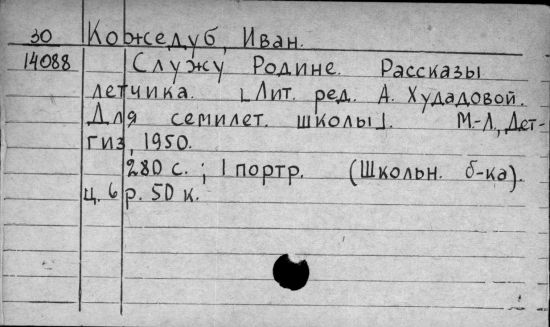 30 Кожедуб, Иван.
14088 Служу Родине. Рассказы
летчика. [Лит. ред. А. Худадовой.
Для семилет. школы]. М.-Л, Дет-
гиз, 1950.
280 с. ; 1 портр. (Школьн. б-ка).
Ц. 6 р. 50 к.